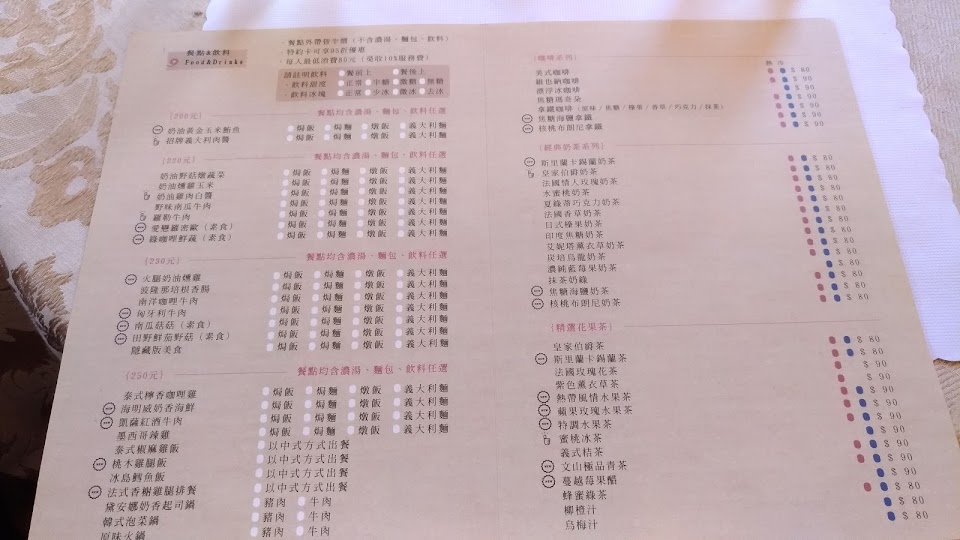 餐點&飲料
Food&Drinks
·餐點外帶皆全價（不含濃湯、麵包、飲料）
·特約卡可享95折優惠
·每人最低消費80元（需收10%服務費）
請註明飲料 餐前上 餐後上
·飲料甜度 正常 半糖 微糖 無糖
·飲料冰塊 正常 少冰 微冰 去冰
餐點均含濃湯、麵包、飲料任選
奶油黃金玉米鮪魚 焗飯 焗麵 燉飯 義大利麵
招牌義大利肉醬 焗飯 焗麵 燉飯 義大利麵
{220元} 餐點均含濃湯、麵包、飲料任選
奶油野菇燉蔬菜 焗飯 焗麵 燉飯 義大利麵
奶油燻雞玉米 焗飯 焗麵 燉飯 義大利麵
奶油雞肉白醬 焗飯 焗麵 燉飯 義大利麵
野味南瓜牛肉 焗飯 焗麵 燉飯 義大利麵
羅勒牛肉 焗飯 焗麵 燉飯 義大利麵
愛戀羅密歐（素食） 焗飯 焗麵 燉飯 義大利麵
綠咖哩鮮蔬（素食） 焗飯 焗麵 燉飯 義大利麵
{230元} 餐點均含濃湯、麵包、飲料任選
火腿奶油燻雞 焗飯 焗麵 燉飯 義大利麵
波隆那培根香腸 焗飯 焗麵 燉飯 義大利麵
南洋咖哩牛肉 焗飯 焗麵 燉飯 義大利麵
匈牙利牛肉 焗飯 焗麵 燉飯 義大利麵
南瓜菇菇（素食） 焗飯 焗麵 燉飯 義大利麵
田野鮮茄野菇（素食） 焗飯 焗麵 燉飯 義大利麵
隱藏版美食 焗飯 焗麵 燉飯 義大利麵
{250元} 餐點均含濃湯、麵包、飲料任選
泰式檸香咖哩雞 焗飯 焗麵 燉飯 義大利麵
海明威奶香海鮮 焗飯 焗麵 燉飯 義大利麵
凱薩紅酒牛肉 焗飯 焗麵 燉飯 義大利麵
墨西哥辣雞 焗飯 焗麵 燉飯 義大利麵
泰式椒麻雞飯 以中式方式出餐
桃木雞腿飯 以中式方式出餐
冰島鱈魚飯 以中式方式出餐
法式香榭雞腿排餐 以中式方式出餐
黛安娜奶香起司鍋 豬肉 牛肉
韓式泡菜鍋 豬肉 牛肉
原味火鍋 豬肉 牛肉
{咖啡系列}
美式咖啡 $ 80
維也納咖啡 $ 80
漂浮冰咖啡 $ 90
焦糖瑪奇朵 $ 80
拿鐵咖啡（原味/焦糖/榛果/香草/巧克力/抹茶） $ 80
焦糖海鹽拿鐵 $ 90
核桃布朗尼拿鐵 $ 90
{經典奶茶系列}
斯里蘭卡錫蘭奶茶 $ 80
皇家伯爵奶茶 $ 80
法國情人玫瑰奶茶 $ 80
水蜜桃奶茶 $ 80
夏綠蒂巧克力奶茶 $ 80
法國香草奶茶 $ 80
日式榛果奶茶 $ 80
印度焦糖奶茶 $ 80
艾妮塔薰衣草奶茶 $ 80
炭焙烏龍奶茶 $ 80
濃純藍莓果奶茶 $ 80
抹茶奶綠 $ 80
焦糖海鹽奶茶 $ 90
核桃布朗尼奶茶 $ 90
{精選花果茶}
皇家伯爵茶 $ 80
斯里蘭卡錫蘭茶 $ 80
法國玫瑰花茶
紫色薰衣草茶
熱帶風情水果茶
蘋果玫瑰水果茶
特調水果茶
蜜桃冰茶
義式桔茶
文山極品青茶
蔓越莓果醋
蜂蜜綠茶
柳橙汁 $ 80
烏梅汁 $ 80